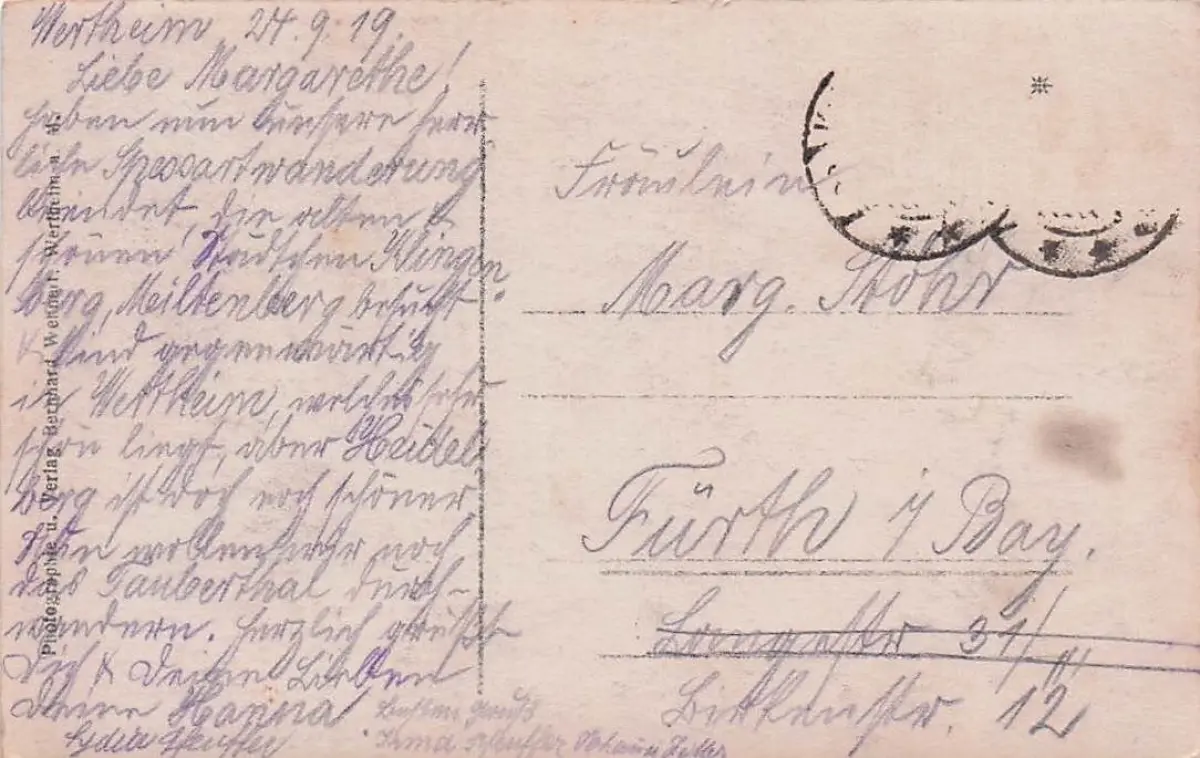 Wertheim 24.9.19.
Liebe Margarethe!
Haben nun unsere herr
liche Spessartwanderung
beendet, die alten &
schönen Städtchen Klingen
berg, Miltenberg besucht
& sind gegenwärtig
in Wertheim, welches sehr
schön liegt, aber Heidel
berg ist doch noch schöner.
Nun wollen wir noch
das Tauberthal durch-
wandern. Herzlich grüßt
Dich & Deine Lieben
Deine Hanna
Lydia
Besten Gruß
Irma
Photographie u. Verlag Bernhard Wehnert, Wertheim a. M.
Fräulein
Marg. Stöhr
Fürth i/Bay.
Langestr 31/
Birkenstr. 12